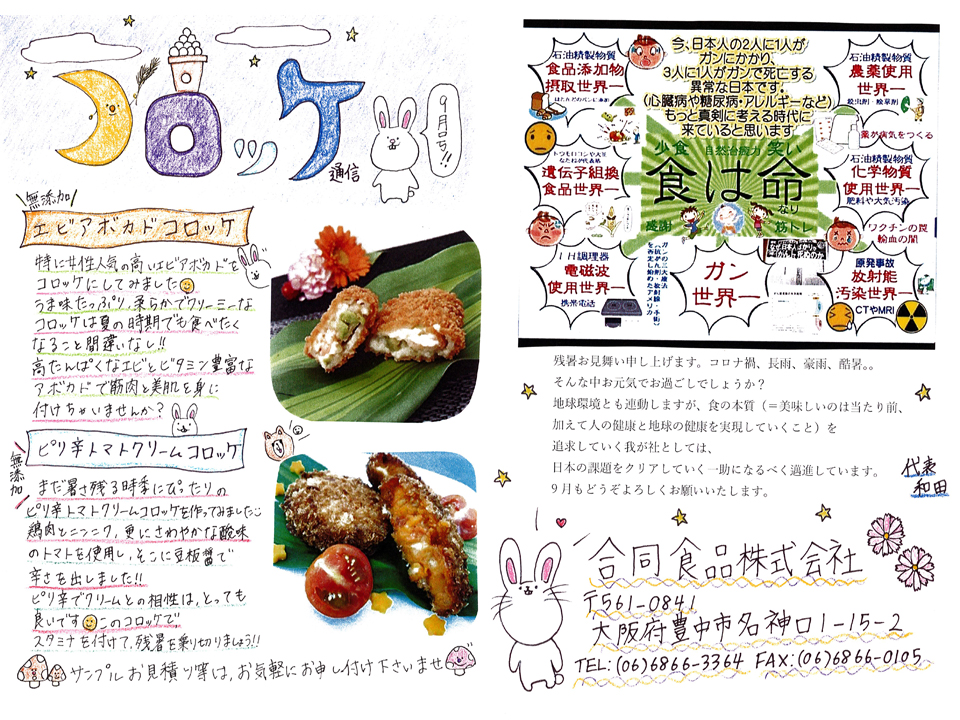 コロッケ
通信
9月号!!
無添加
エビアボカドコロッケ
特に女性人気の高いエビアボカドを
コロッケにしてみました
うま味たっぷり、柔らかでクリーミーな
コロッケは夏の時期でも食べたく
なること間違いなし!!
高たんぱくなエビとビタミン豊富な
アボカドで筋肉と美肌を身に
付けちゃいませんか?
無添加
ピリ辛トマトクリームコロッケ
まだ暑さ残る時季にぴったりの
ピリ辛トマトクリームコロッケを作ってみました
鶏肉とニンニク、更にさわやかな酸味
のトマトを使用し、そこに豆板醤で
辛さを出しました!!
ピリ辛でクリームとの相性は、とっても
良いです このコロッケで
スタミナを付けて、残暑を乗り切りましょう!!
サンプルお見積り等は、お気軽にお申し付け下さいませ
石油精製物質
食品添加物
摂取世界一
今、日本人の2人に1人が
ガンにかかり、
3人に1人がガンで死亡する
異常な日本です。
(心臓病や糖尿病・アレルギーなど)
もっと真剣に考える時代に
来ていると思います
石油精製物質
農薬使用
世界一
殺虫剤・除草剤
薬が病気をつくる
少食 自然治癒力 笑い
食は命
なり
感謝
筋トレ
遺伝子組換
食品世界一
石油精製物質
化学物質
使用世界一
肥料や大気汚染
ワクチンの罠
輸血の闇
IH調理器
電磁波
使用世界一
携帯電話
ガン
世界一
原発事故
放射能
汚染世界一
CTやMRI
残暑お見舞い申し上げます。コロナ禍、長雨、豪雨、酷暑。。
そんな中お元気でお過ごしでしょうか?
地球環境とも連動しますが、食の本質(=美味しいのは当たり前、
加えて人の健康と地球の健康を実現していくこと)を
追求していく我が社としては、
日本の課題をクリアしていく一助になるべく邁進しています。
9月もどうぞよろしくお願いいたします。
代表
和田
合同食品株式会社
〒561-0841
大阪府豊中市名神口1-15-2
TEL:(06)6866-3364 FAX:(06)6866-0105